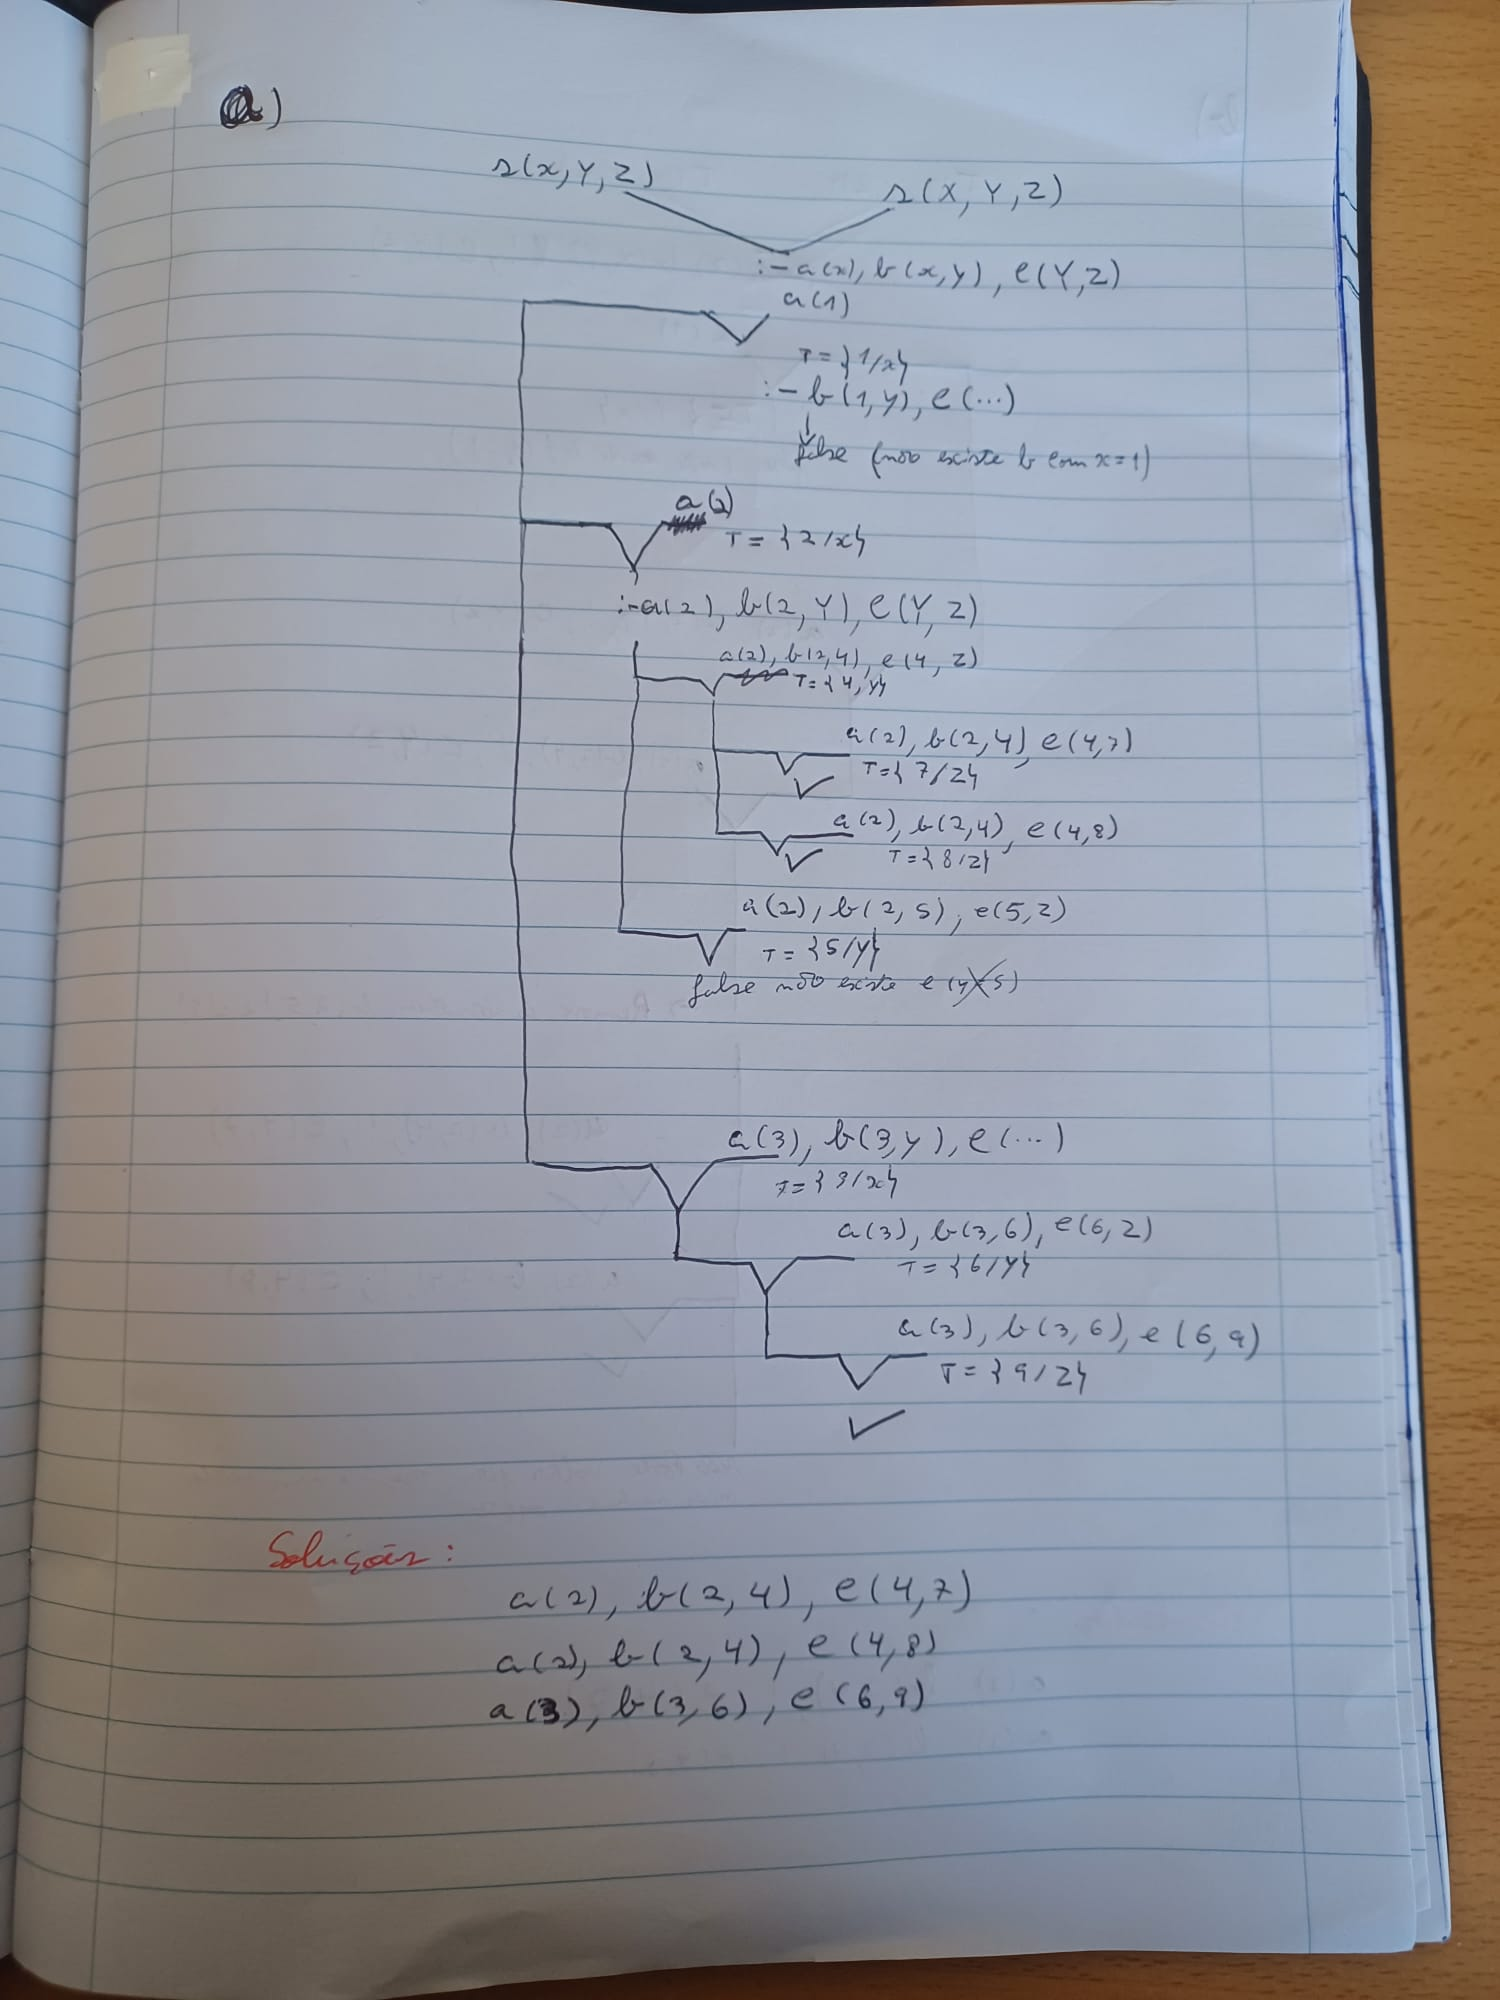 a)
s(x,Y,Z)
s(X,Y,Z)
:- a(x), b(x,y), e(Y,Z)
a(1)
T={1/x}
:- b(1,y), e(...)
↓
false (não existe b com x=1)
a(2)
T={2/x}
:-a(2), b(2,Y), e(Y,Z)
a(2), b(2,4), e(4,Z)
T={4,Y}
a(2), b(2,4), e(4,7)
T={7/Z}
✓
a(2), b(2,4), e(4,8)
T={8/Z}
✓
a(2), b(2,5), e(5,Z)
T={5/Y}
false não existe e
a(3), b(3,y), e(...)
T={3/x}
a(3), b(3,6), e(6,Z)
T={6/Y}
a(3), b(3,6), e(6,9)
T={9/Z}
✓
Soluções:
a(2), b(2,4), e(4,7)
a(2), b(2,4), e(4,8)
a(3), b(3,6), e(6,9)